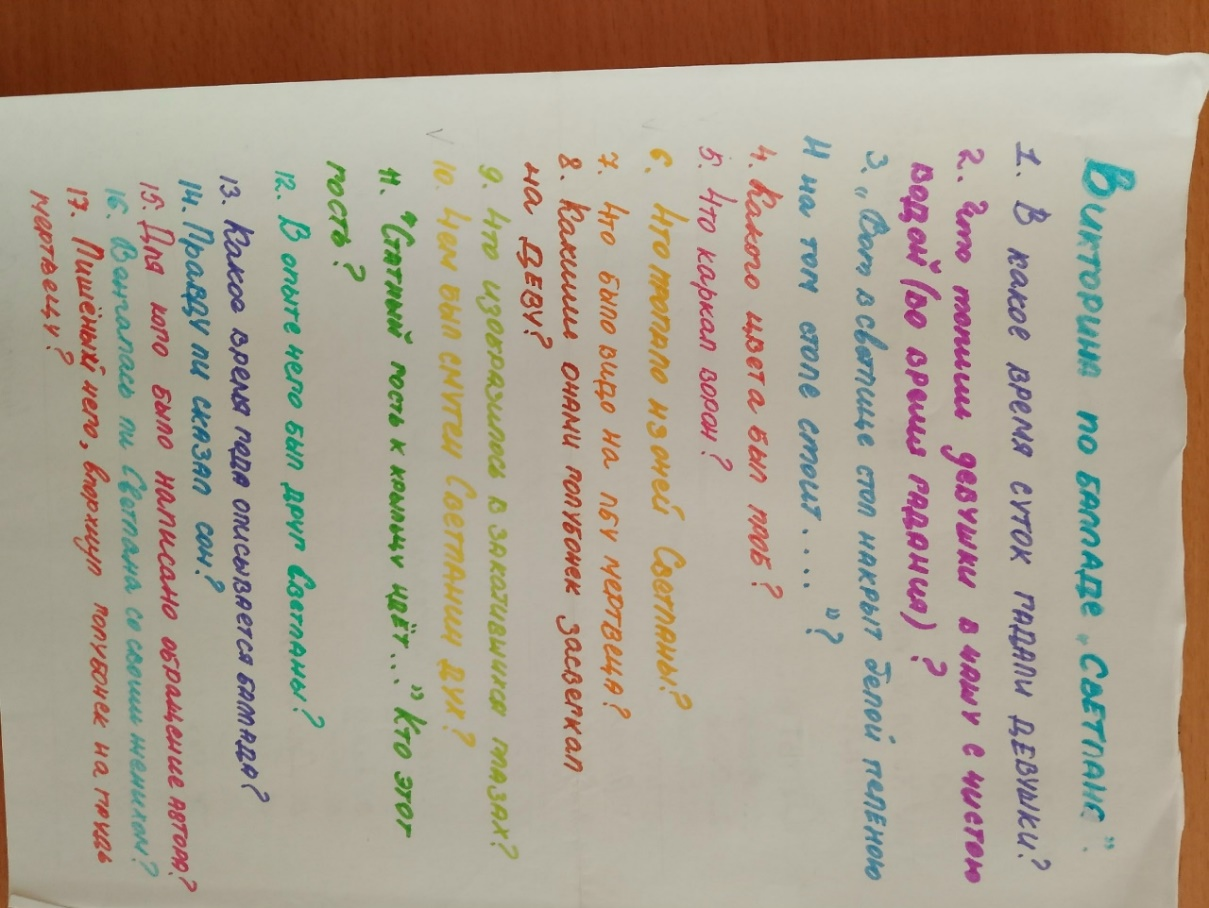 Викторина по балладе „Светлана".
1. В какое время суток гадали девушки?
2. Что топили девушки в чашу с чистою
водой (во время гадания)?
3. „Вот в светлице стол накрыт белой пеленою
И на том столе стоит...."?
4. Какого цвета был гроб?
5. Что каркал ворон?
6. Что топало из оней Светланы?
7. Что было видо на лбу мертвеца?
8. Какими очами голубочек засверкал
на деву?
9. Что изобразилось в закатившихся глазах?
10. Чем был смутен Светланин дух?
11. "Статный гость к крыльцу идёт..." Кто этот
гость?
12. В опыте чего был друг Светланы?
13. Какое время года описывается баллада?
14. Правду ли сказал сон?
15. Для кого было написано обращение автора?
16. Вончалась ли Светлана со своим женихом?
17. Лишённый чего, впорхнул голубочек на грудь
мертвецу?